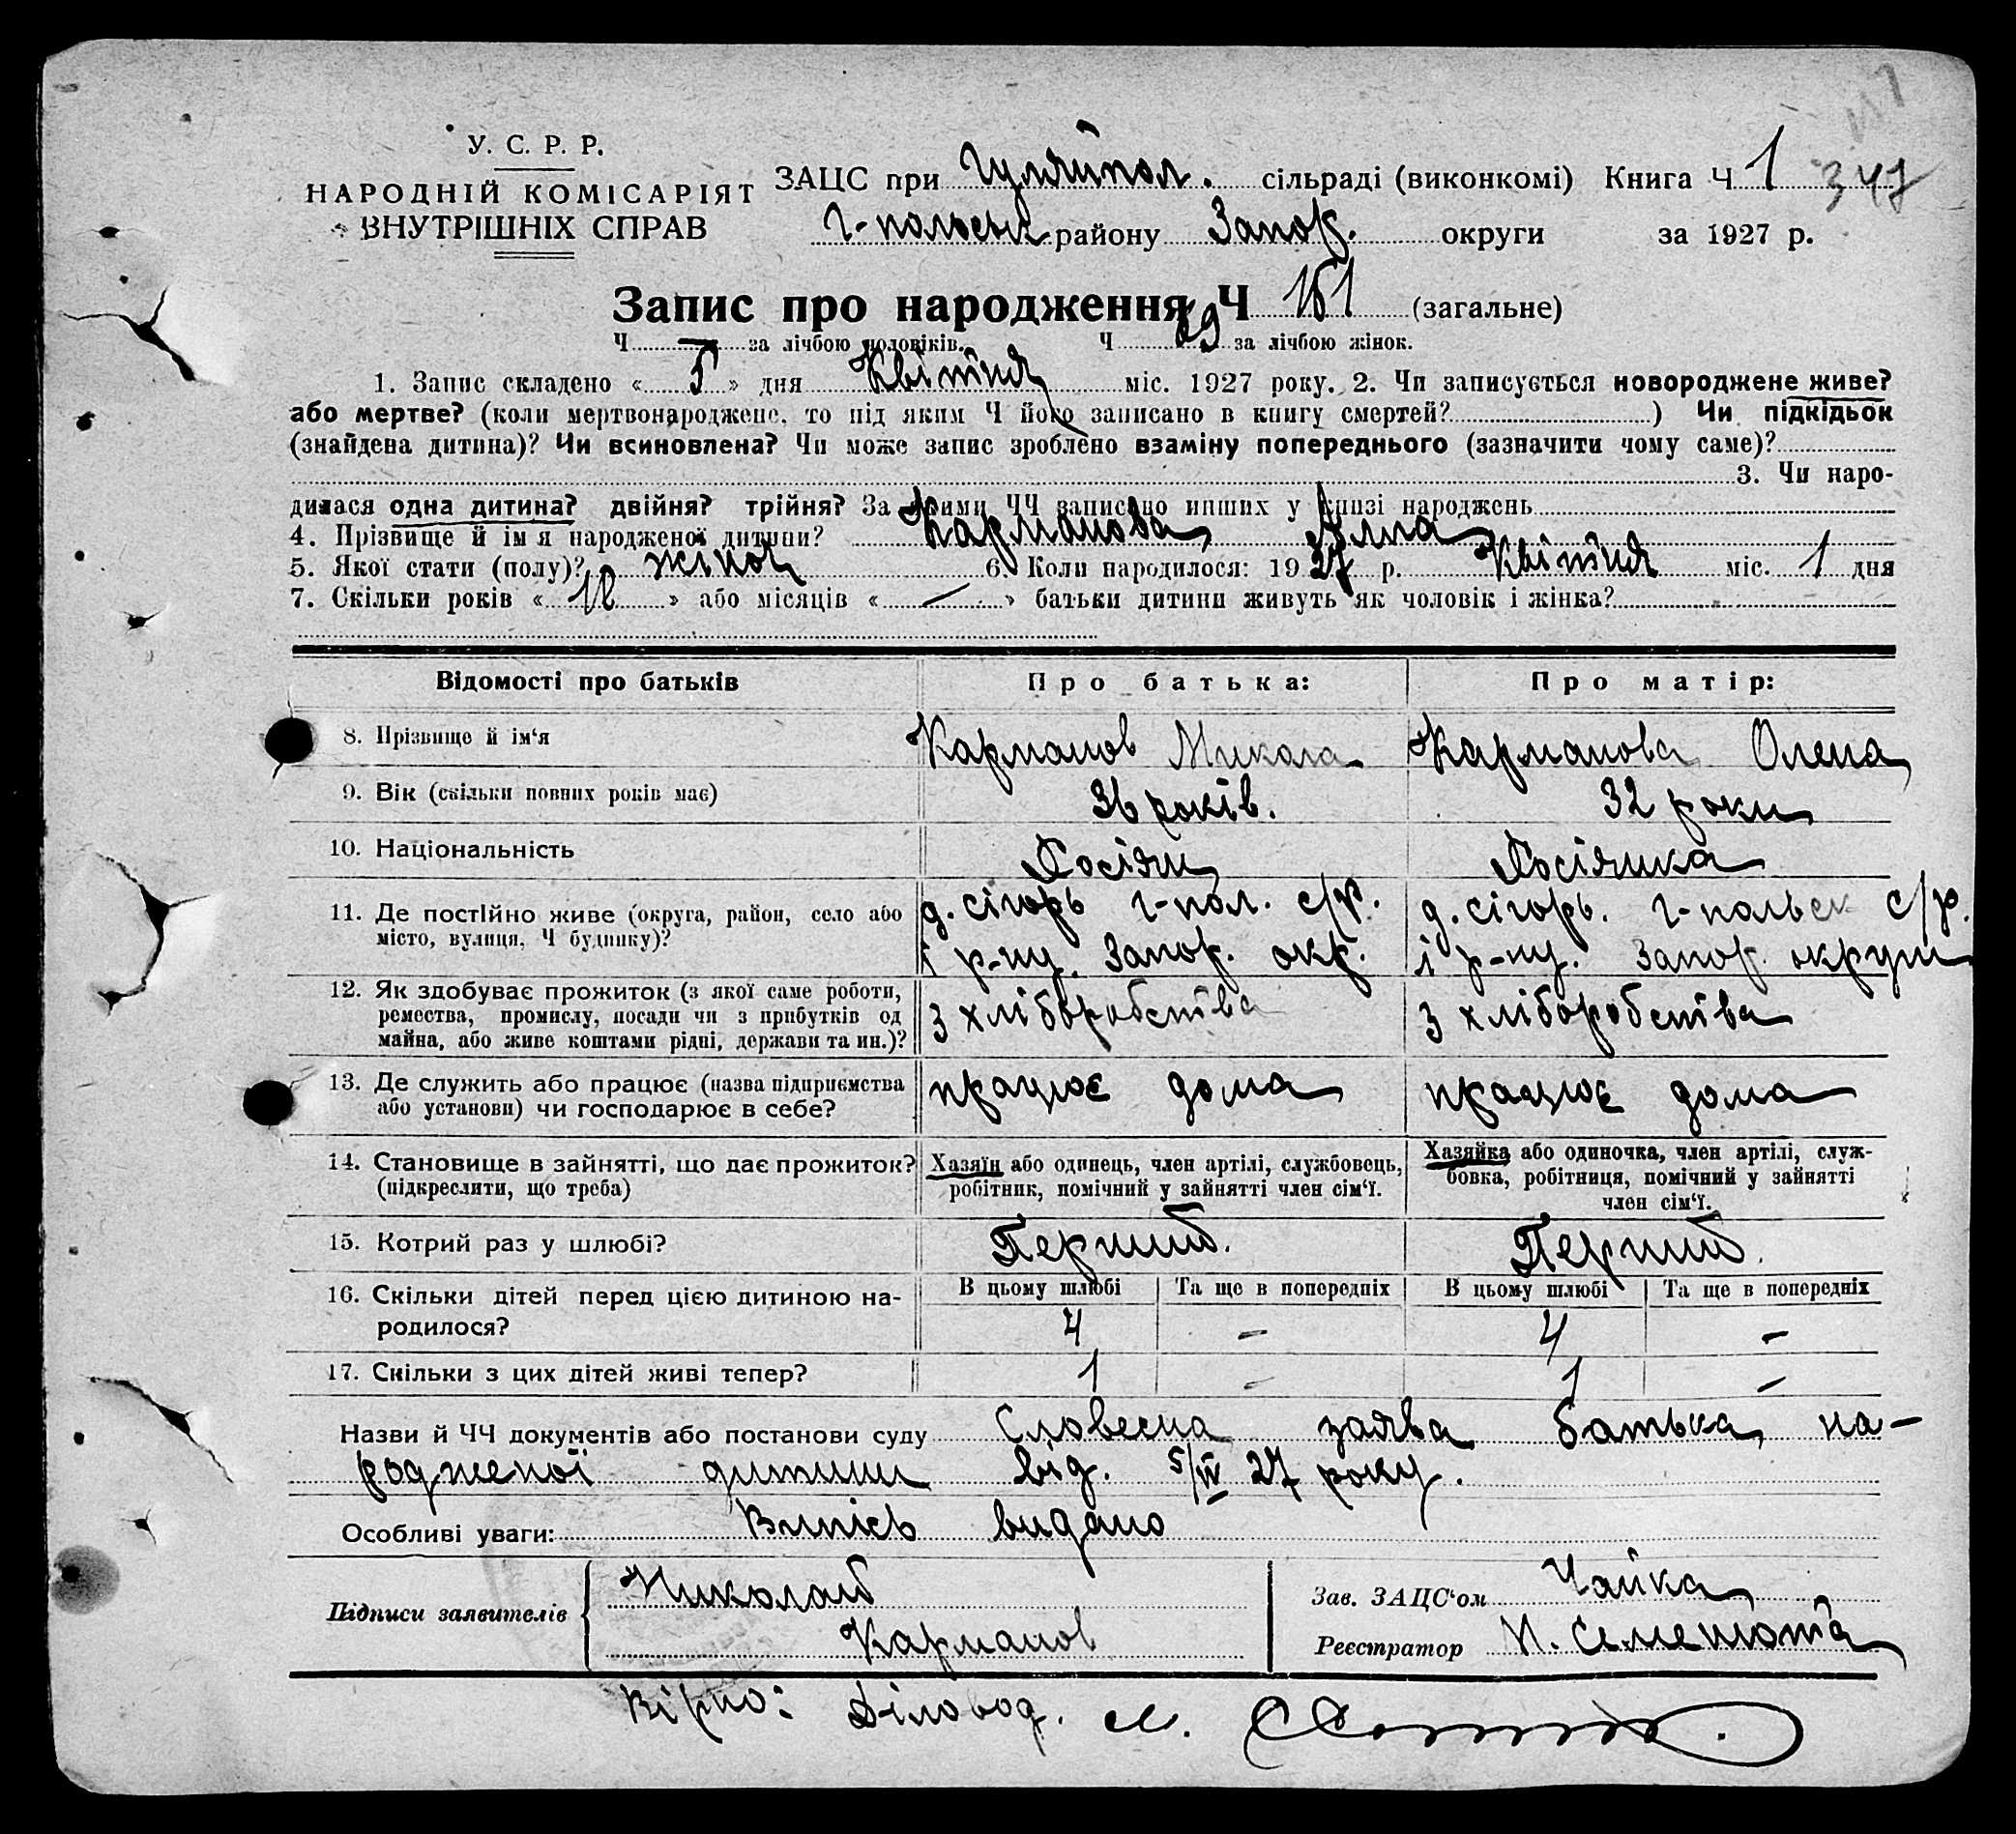 У. С. Р. Р.
НАРОДНІЙ КОМІСАРІЯТ
ВНУТРІШНІХ СПРАВ
ЗАЦС при Гуляйпол. сільраді (виконкомі) Книга Ч 1 347
Г-польськ району Запор. округи за 1927 р.
Запис про народження Ч 151 (загальне)
Ч — за лічбою чоловіків. Ч 69 за лічбою жінок.
1. Запис складено « 5 » дня Квітня міс. 1927 року. 2. Чи записується новороджене живе?
або мертве? (коли мертвонароджене, то під яким Ч його записано в книгу смертей? ) Чи підкідьок
(знайдена дитина)? Чи всиновлена? Чи може запис зроблено взаміну попереднього (зазначити чому саме)?
3. Чи наро-
дилася одна дитина? двійня? трійня? За якими ЧЧ записано инших у книзі народжень
4. Прізвище й ім'я народженої дитини? Карманова
5. Якої стати (полу)? жіноч 6. Коли народилося: 1927 р. Квітня міс. 1 дня
7. Скільки років « » або місяців « — » батьки дитини живуть як чоловік і жінка?
Відомості про батьків Про батька: Про матір:
8. Прізвище й ім'я Карманов Микола Карманова Олена
9. Вік (скільки повних років має) 36 років. 32 роки
10. Національність Росіян Росіянка
11. Де постійно живе (округа, район, село або д. сігорь г-пол. с/р. д. сігорь. г-польськ с/р.
місто, вулиця, Ч будинку)? і р-ну. Запор. окр. і р-ну. Запор. округи
12. Як здобуває прожиток (з якої саме роботи, з хліборобства з хліборобства
ремества, промислу, посади чи з прибутків од
майна, або живе коштами рідні, держави та ин.)?
13. Де служить або працює (назва підприємства працює дома працює дома
або установи) чи господарює в себе?
14. Становище в зайнятті, що дає прожиток? Хазяїн або одинець, член артілі, службовець, Хазяйка або одиночка, член артілі, служ-
(підкреслити, що треба) робітник, помічний у зайнятті член сім'ї. бовка, робітниця, помічний у зайнятті
член сім'ї.
15. Котрий раз у шлюбі? Перший. Перший.
16. Скільки дітей перед цією дитиною на- В цьому шлюбі Та ще в попередніх В цьому шлюбі Та ще в попередніх
родилося? 4 — 4 —
17. Скільки з цих дітей живі тепер? 1 — 1 —
Назви й ЧЧ документів або постанови суду Словесна заява батька на-
родженої дитини від. 5/IV 27 року.
Особливі уваги: Випісь видано
Підписи заявителів Николай Зав. ЗАЦС'ом Чайка
Карманов Реєстратор
Вірно: Діловод.